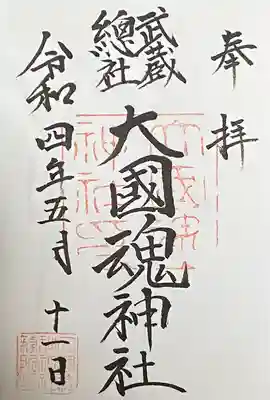 奉拝
武蔵
總社
大國魂神社
令和四年五月
十一日